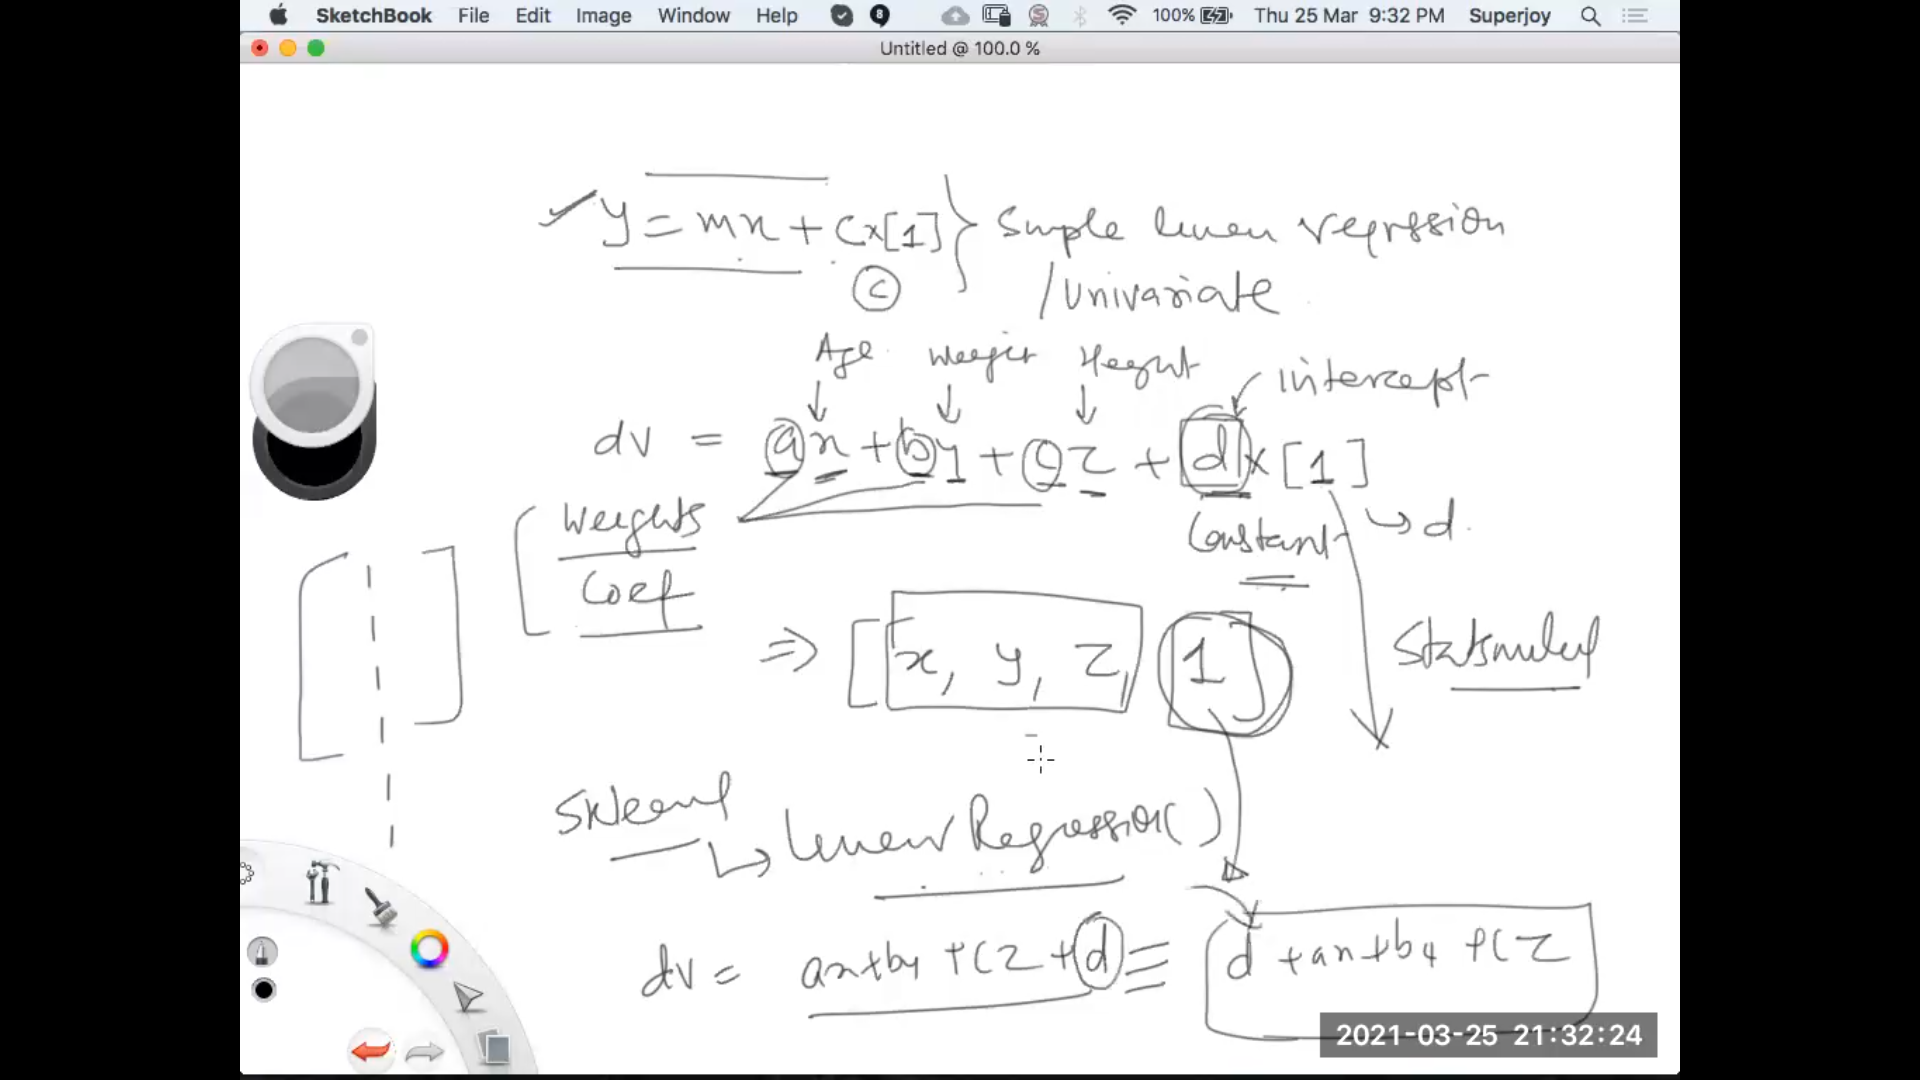 SketchBook File Edit Image Window Help 8 100% Thu 25 Mar 9:32 PM Superjoy
Untitled @ 100.0 %
y = mx + c x [1] } Simple linear regression
c / Univariate
Age Weight Height intercept
dv = ax + by + cz + d x [1]
Weights Constant → d
Coef
⇒ [x, y, z, 1] Statsmodel
Sklearn
↳ Linear Regression()
dv = ax + by + cz + d ≡ d + ax + by + cz
2021-03-25 21:32:24